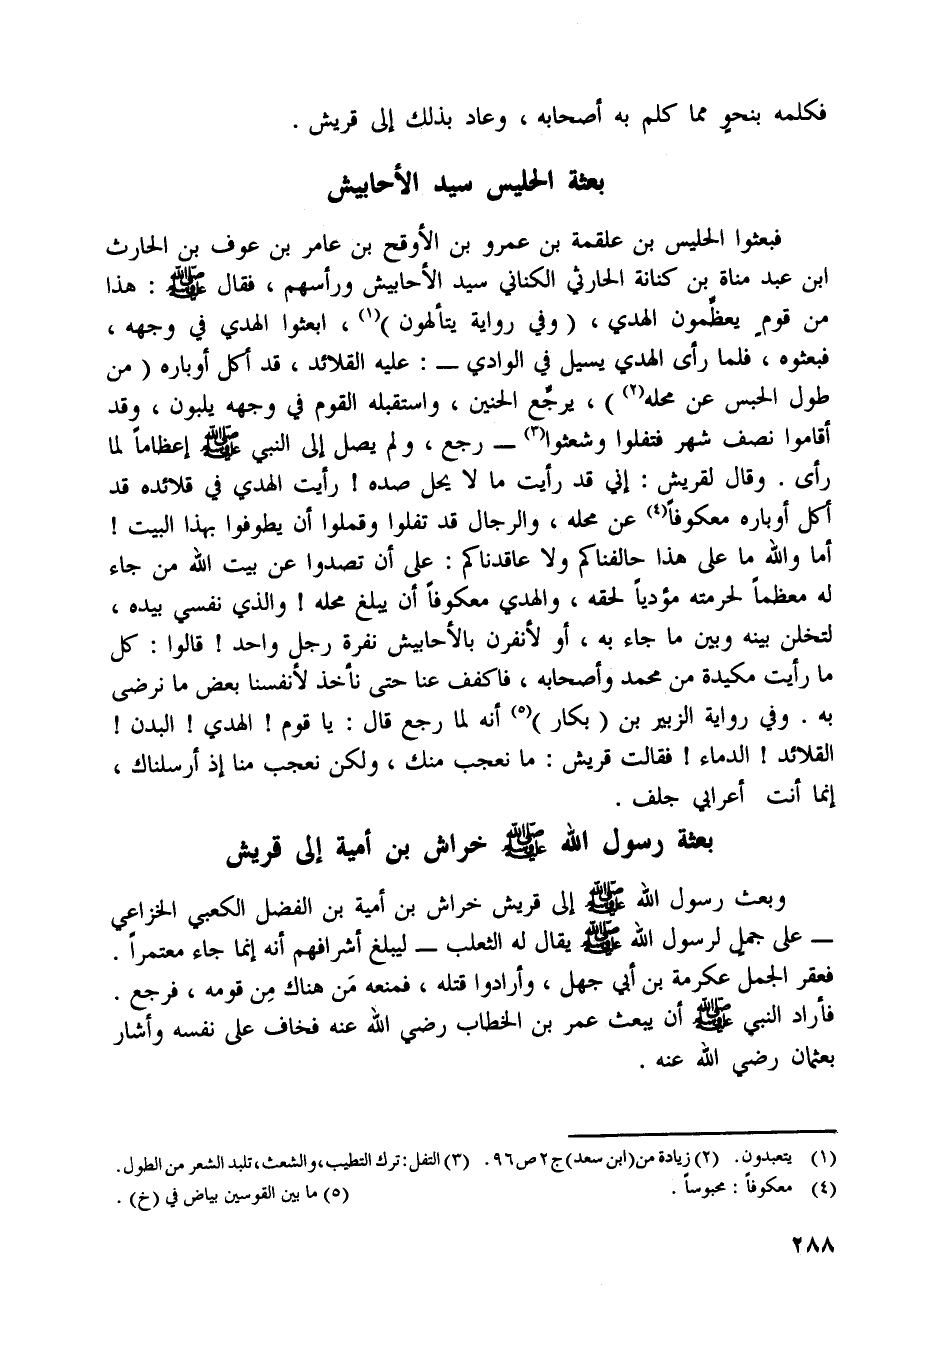 فكلمه بنحوٍ مما كلم به أصحابه ، وعاد بذلك إلى قريش .
بعثة الحليس سيد الأحابيش
فبعثوا الحليس بن علقمة بن عمرو بن الأوقح بن عامر بن عوف بن الحارث
ابن عبد مناة بن كنانة الحارثي الكناني سيد الأحابيش ورأسهم ، فقال ﷺ : هذا
من قومٍ يعظِّمون الهدي ، ( وفي رواية يتألهون )(١) ، ابعثوا الهدي في وجهه ،
فبعثوه ، فلما رأى الهدي يسيل في الوادي ــ : عليه القلائد ، قد أكل أوباره ( من
طول الحبس عن محله(٢) ) ، يرجِّع الحنين ، واستقبله القوم في وجهه يلبون ، وقد
أقاموا نصف شهر فتفلوا وشعثوا(٣) ــ رجع ، ولم يصل إلى النبي ﷺ إعظاماً لما
رأى . وقال لقريش : إني قد رأيت ما لا يحل صده ! رأيت الهدي في قلائده قد
أكل أوباره معكوفاً(٤) عن محله ، والرجال قد تفلوا وقملوا أن يطوفوا بهذا البيت !
أما والله ما على هذا حالفناكم ولا عاقدناكم : على أن تصدوا عن بيت الله من جاء
له معظماً لحرمته مؤدياً لحقه ، والهدي معكوفاً أن يبلغ محله ! والذي نفسي بيده ،
لتخلن بينه وبين ما جاء به ، أو لأنفرن بالأحابيش نفرة رجل واحد ! قالوا : كل
ما رأيت مكيدة من محمد وأصحابه ، فاكفف عنا حتى نأخذ لأنفسنا بعض ما نرضى
به . وفي رواية الزبير بن ( بكار )(٥) أنه لما رجع قال : يا قوم ! الهدي ! البدن !
القلائد ! الدماء ! فقالت قريش : ما نعجب منك ، ولكن نعجب منا إذ أرسلناك ،
إنما أنت أعرابي جلف .
بعثة رسول الله ﷺ خراش بن أمية إلى قريش
وبعث رسول الله ﷺ إلى قريش خراش بن أمية بن الفضل الكعبي الخزاعي
ــ على جملٍ لرسول الله ﷺ يقال له الثعلب ــ ليبلغ أشرافهم أنه إنما جاء معتمراً .
فعقر الجمل عكرمة بن أبي جهل ، وأرادوا قتله ، فمنعه مَن هناك مِن قومه ، فرجع .
فأراد النبي ﷺ أن يبعث عمر بن الخطاب رضي الله عنه فخاف على نفسه وأشار
بعثمان رضي الله عنه .
(١) يتعبدون. (٢) زيادة من(ابن سعد)ج٢ص٩٦. (٣) التفل: ترك التطيب،والشعث،تلبد الشعر من الطول.
(٤) معكوفاً : محبوساً . (٥) ما بين القوسين بياض في (خ) .
٢٨٨